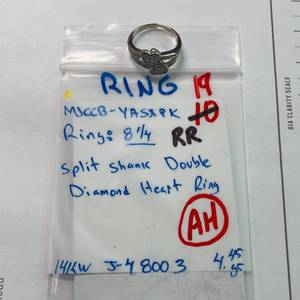 RING 19
10
MJCCB-YASXPK
Ring: 8 1/4
RR
Split Shank Double
Diamond Heart Ring
AH
14KW J-48003 4.45
GIA CLARITY SCALE